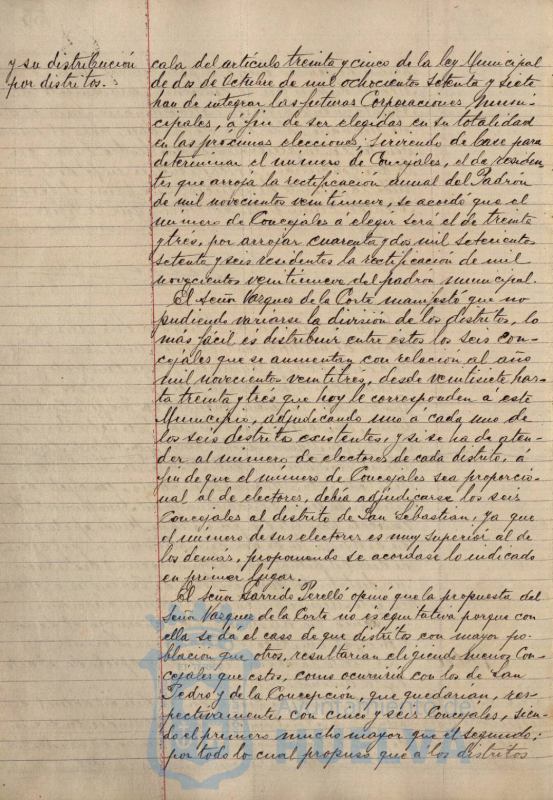 y su distribución
por distritos.-
cala del artículo treinta y cinco de la ley Municipal
de dos de Octubre de mil ochocientos setenta y siete
han de integrar las futuras Corporaciones Muni-
cipales, á fin de ser elegidas en su totalidad
en las próximas elecciones; sirviendo de base para
determinar el número de Concejales, el de residen-
tes que arroja la rectificación anual del Padrón
de mil novecientos veintinueve, se acordó que el
número de Concejales á elegir será el de treinta
y trés, por arrojar cuarenta y dos mil setecientos
setenta y seis residentes la rectificación de mil
novecientos veintinueve del padrón municipal.
El Señor Vazquez de la Corte manifestó que no
pudiendo variarse la división de los distritos, lo
más fácil es distribuir entre éstos los seis con-
cejales que se aumentan con relación al año
mil novecientos veintitres, desde veintisiete has-
ta treinta y trés que hoy le corresponden á este
Municipio, adjudicando uno á cada uno de
los seis distritos existentes, y si se ha de aten-
der al número de electores de cada distrito, á
fin de que el número de Concejales sea proporcio-
nal al de electores, debía adjudicarse los seis
Concejales al distrito de San Sebastian, ya que
el número de sus electores es muy superior al de
los demás, proponiendo se acordase lo indicado
en primer lugar.
El Señor Garrido Perelló opinó que la propuesta del
Señor Vazquez de la Corte no és equitativa porque con
ella se da el caso de que distritos con mayor po-
blación que otros, resultarian eligiendo menos Con-
cejales que estos, como ocurriría con los de San
Pedro y de la Concepción, que quedarían, res-
pectivamente, con cinco y seis Concejales, sien-
do el primero mucho mayor que el segundo;
por todo lo cual propuso que á los distritos
Ayuntamiento de
HUELVA